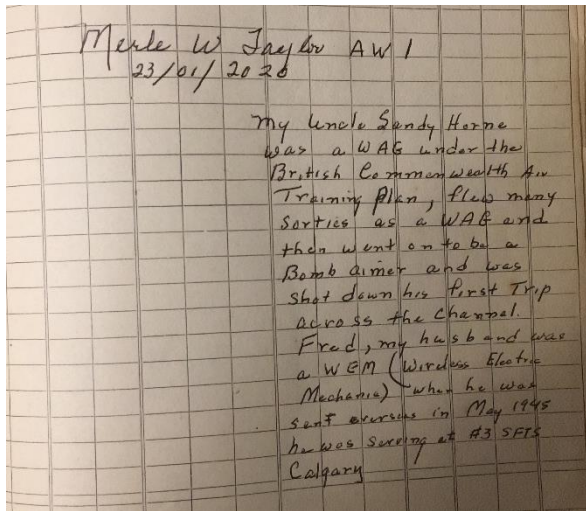 Merle W Taylor AW 1
23/01/2020
My Uncle Sandy Horne
was a WAG under the
British Commonwealth Air
Training Plan, flew many
Sorties as a WAG and
then went on to be a
Bomb aimer and was
shot down his first Trip
across the Channel.
Fred, my husband was
a WEM (Wireless Electric
Mechanic) when he was
sent overseas in May 1945
he was serving at #3 SFTS
Calgary